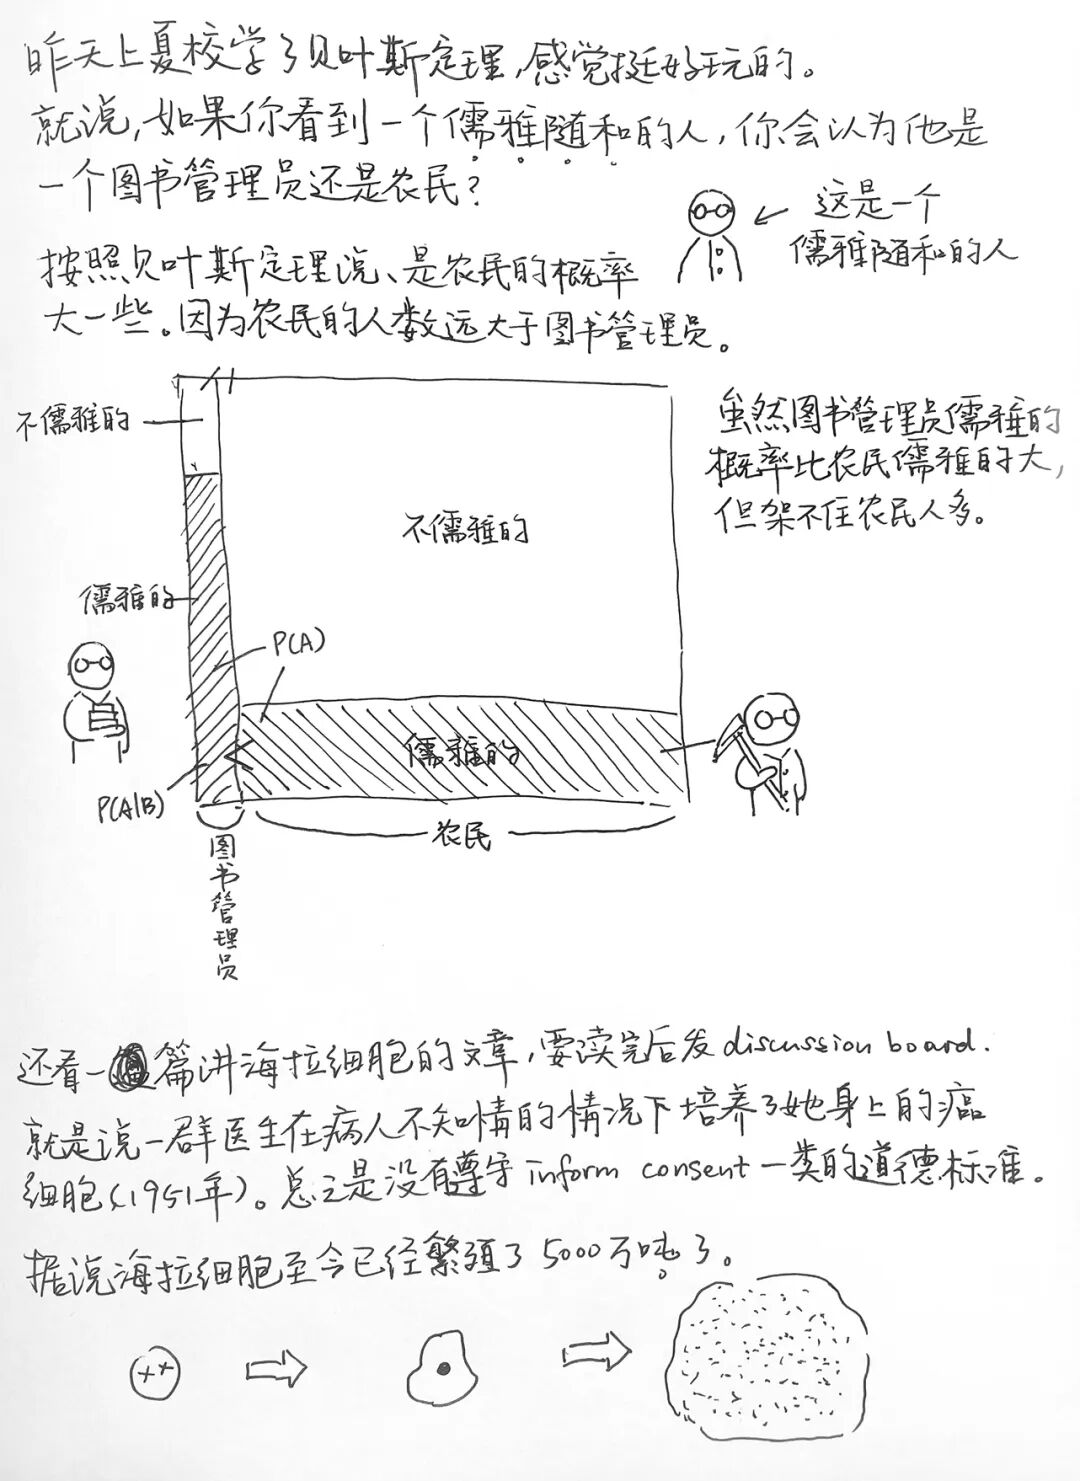 昨天上夏校学了贝叶斯定理,感觉挺好玩的。
就说,如果你看到一个儒雅随和的人,你会认为他是
一个图书管理员还是农民?
这是一个
儒雅随和的人
按照贝叶斯定理说、是农民的概率
大一些。因为农民的人数远大于图书管理员。
不儒雅的
虽然图书管理员儒雅的
概率比农民儒雅的大,
但架不住农民人多。
不儒雅的
儒雅的
P(A)
儒雅的
<
P(A|B)
农民
图书管理员
还看一篇讲海拉细胞的文章,要读完后发discussion board.
就是说一群医生在病人不知情的情况下培养了她身上的癌
细胞(1951年)。总之是没有遵守inform consent一类的道德标准。
据说海拉细胞至今已经繁殖了5000万吨了。